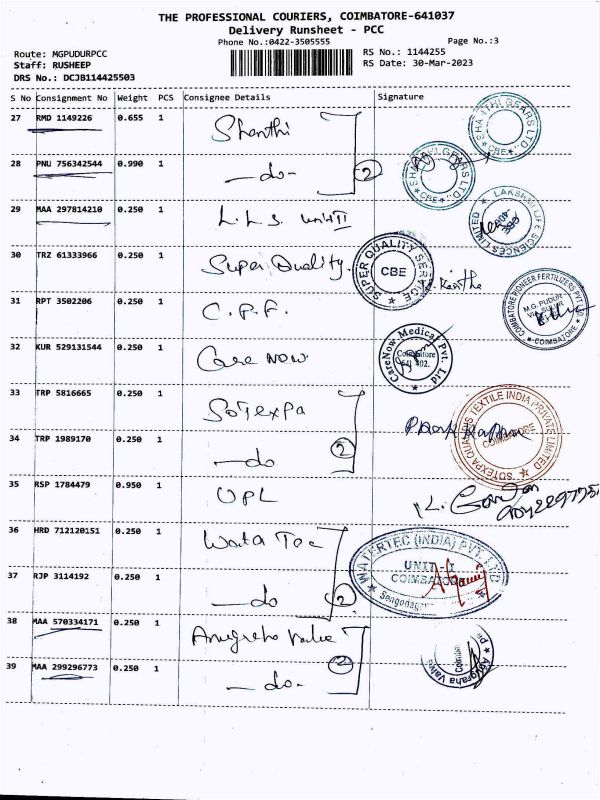 THE PROFESSIONAL COURIERS, COIMBATORE-641037
Delivery Runsheet - PCC
Phone No.:0422-3505555 Page No.:3
Route: MGPUDURPCC RS No.: 1144255
Staff: RUSHEEP RS Date: 30-Mar-2023
DRS No.: DCJB114425503
S No Consignment No Weight PCS Consignee Details Signature
27 RMD 1149226 0.655 1 Shanthi
28 PNU 756342544 0.990 1 —do— 2
29 MAA 297814210 0.250 1 L.L.S. unit II
30 TRZ 61333966 0.250 1 Super Quality.
SUPER QUALITY SERVICE
CBE
31 RPT 3502206 0.250 1 C.P.F.
COIMBATORE PIONEER FERTILIZERS PVT LTD
M.G. PUDUR
COIMBATORE
LAKSHMI LIFE SCIENCES LIMITED
32 KUR 529131544 0.250 1 Care Now
CareNow Medical Pvt. Ltd
Coimbatore
641 402.
33 TRP 5816665 0.250 1 SOTEXPA
34 TRP 1989170 0.250 1 —do 2
SOTEXPA QUALIDIS TEXTILE INDIA PRIVATE LIMITED
COIMBATORE
35 RSP 1784479 0.950 1 UPL
36 HRD 712120151 0.250 1 Wata Tec
WATERTEC (INDIA) PVT. LTD
UNIT-I
COIMBATORE
37 RJP 3114192 0.250 1 —do 2
38 MAA 570334171 0.250 1 Anugraha Valve
39 MAA 299296773 0.250 1 —do— 2
Anugraha Valve